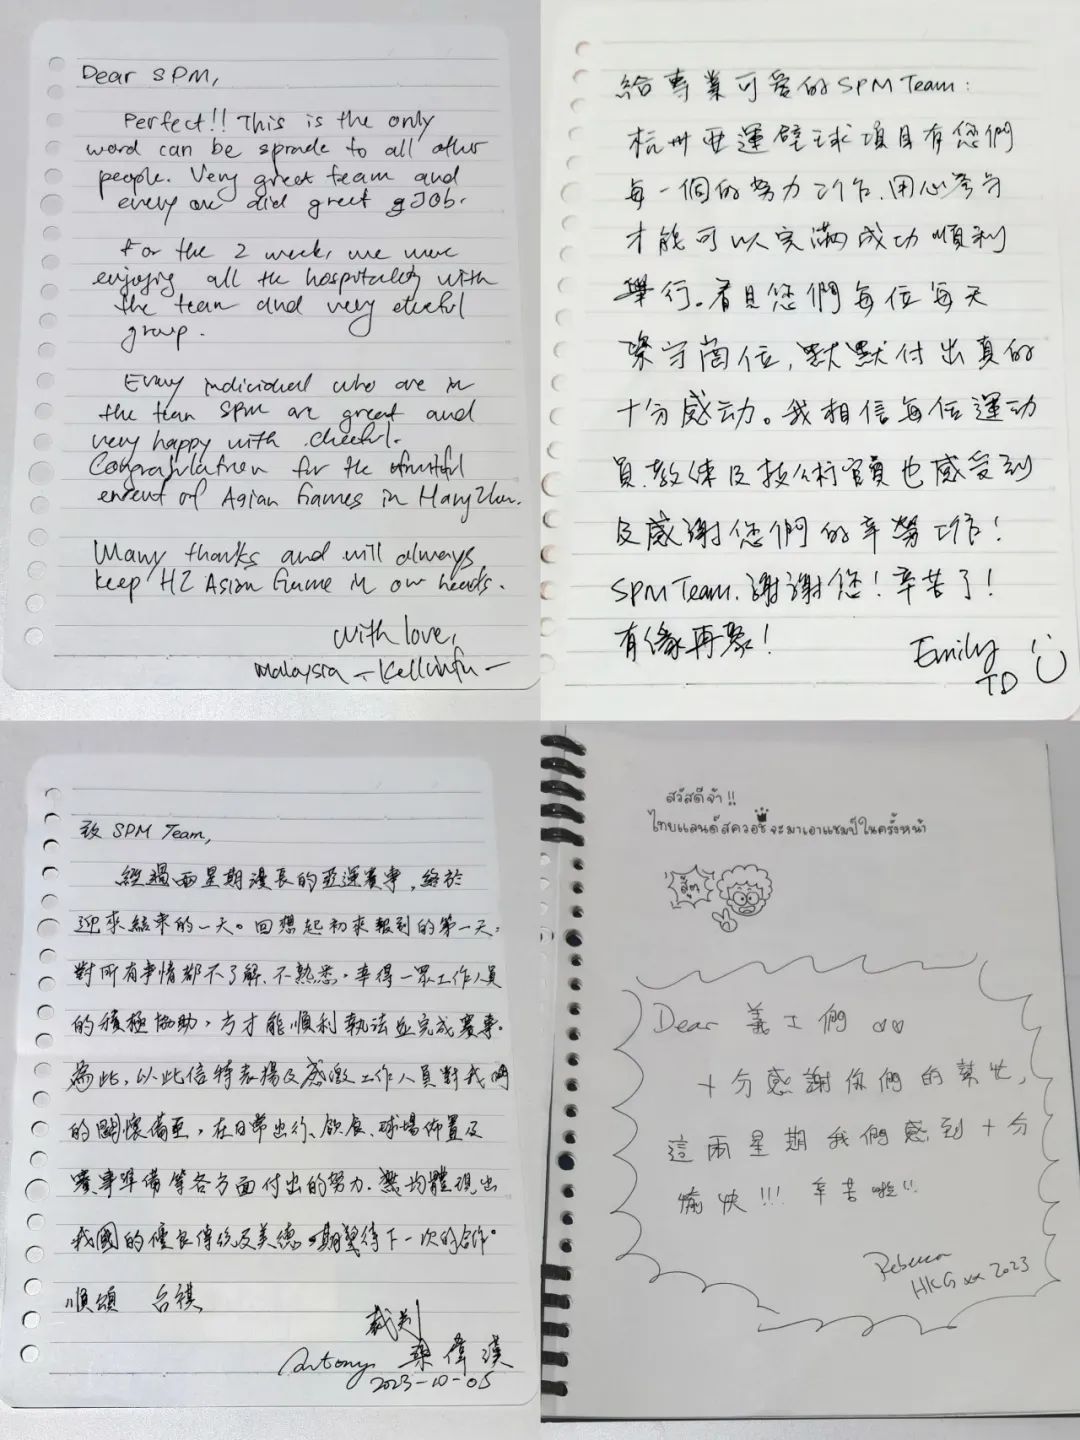 Dear SPM,
Perfect!! This is the only
word can be sprade to all other
people. Very great team and
every one did great JOb.
For the 2 week, we were
enjoying all the hospitality with
the team and very cheerful
group.
Every individual who are in
the team SPM are great and
very happy with cheerful.
Congratulation for the
of Asian Games in HangZhou.
Many thanks and will always
keep HZ Asian Game in our heads.
With love,
Malaysia -
給專業可爱的SPM Team:
杭州亚運壁球項目有您們
每一個的努力工作、用心
才能可以完滿成功順利
舉行。看見您們每位每天
守崗位,默默付出真的
十分感动。我相信每位運动
員、教练及技術官員也感受到
及感謝您們的辛勞工作!
SPM Team. 謝謝您!辛苦了!
有缘再聚!
Emily
TD
致 SPM Team,
經過兩星期漫長的亚運賽事,終於
迎來結束的一天。回想起初來報到的第一天,
對所有事情都不了解、不熟悉。幸得一眾工作人員
的積極協助,方才能順利執法並完成賽事.
為此,以此信特表揚及感激工作人員對我們
的關懷備至,在日常出行、飲食、球場佈置及
賽事準備等各方面付出的努力.無均體現出
我國的優良傳統及美德。期望待下一次的合作。
順頌 台祺
裁判
Antony 梁偉漢
2023-10-05
สวัสดีจ้า !!
ไทยแลนด์สควอชจะมาเอาแชมป์ในครั้งหน้า
สู้ๆ
Dear 義工們
十分感謝你們的幫忙,
這兩星期我們感到十分
愉快!!! 辛苦啦!!
Rebecca
HKG xx 2023